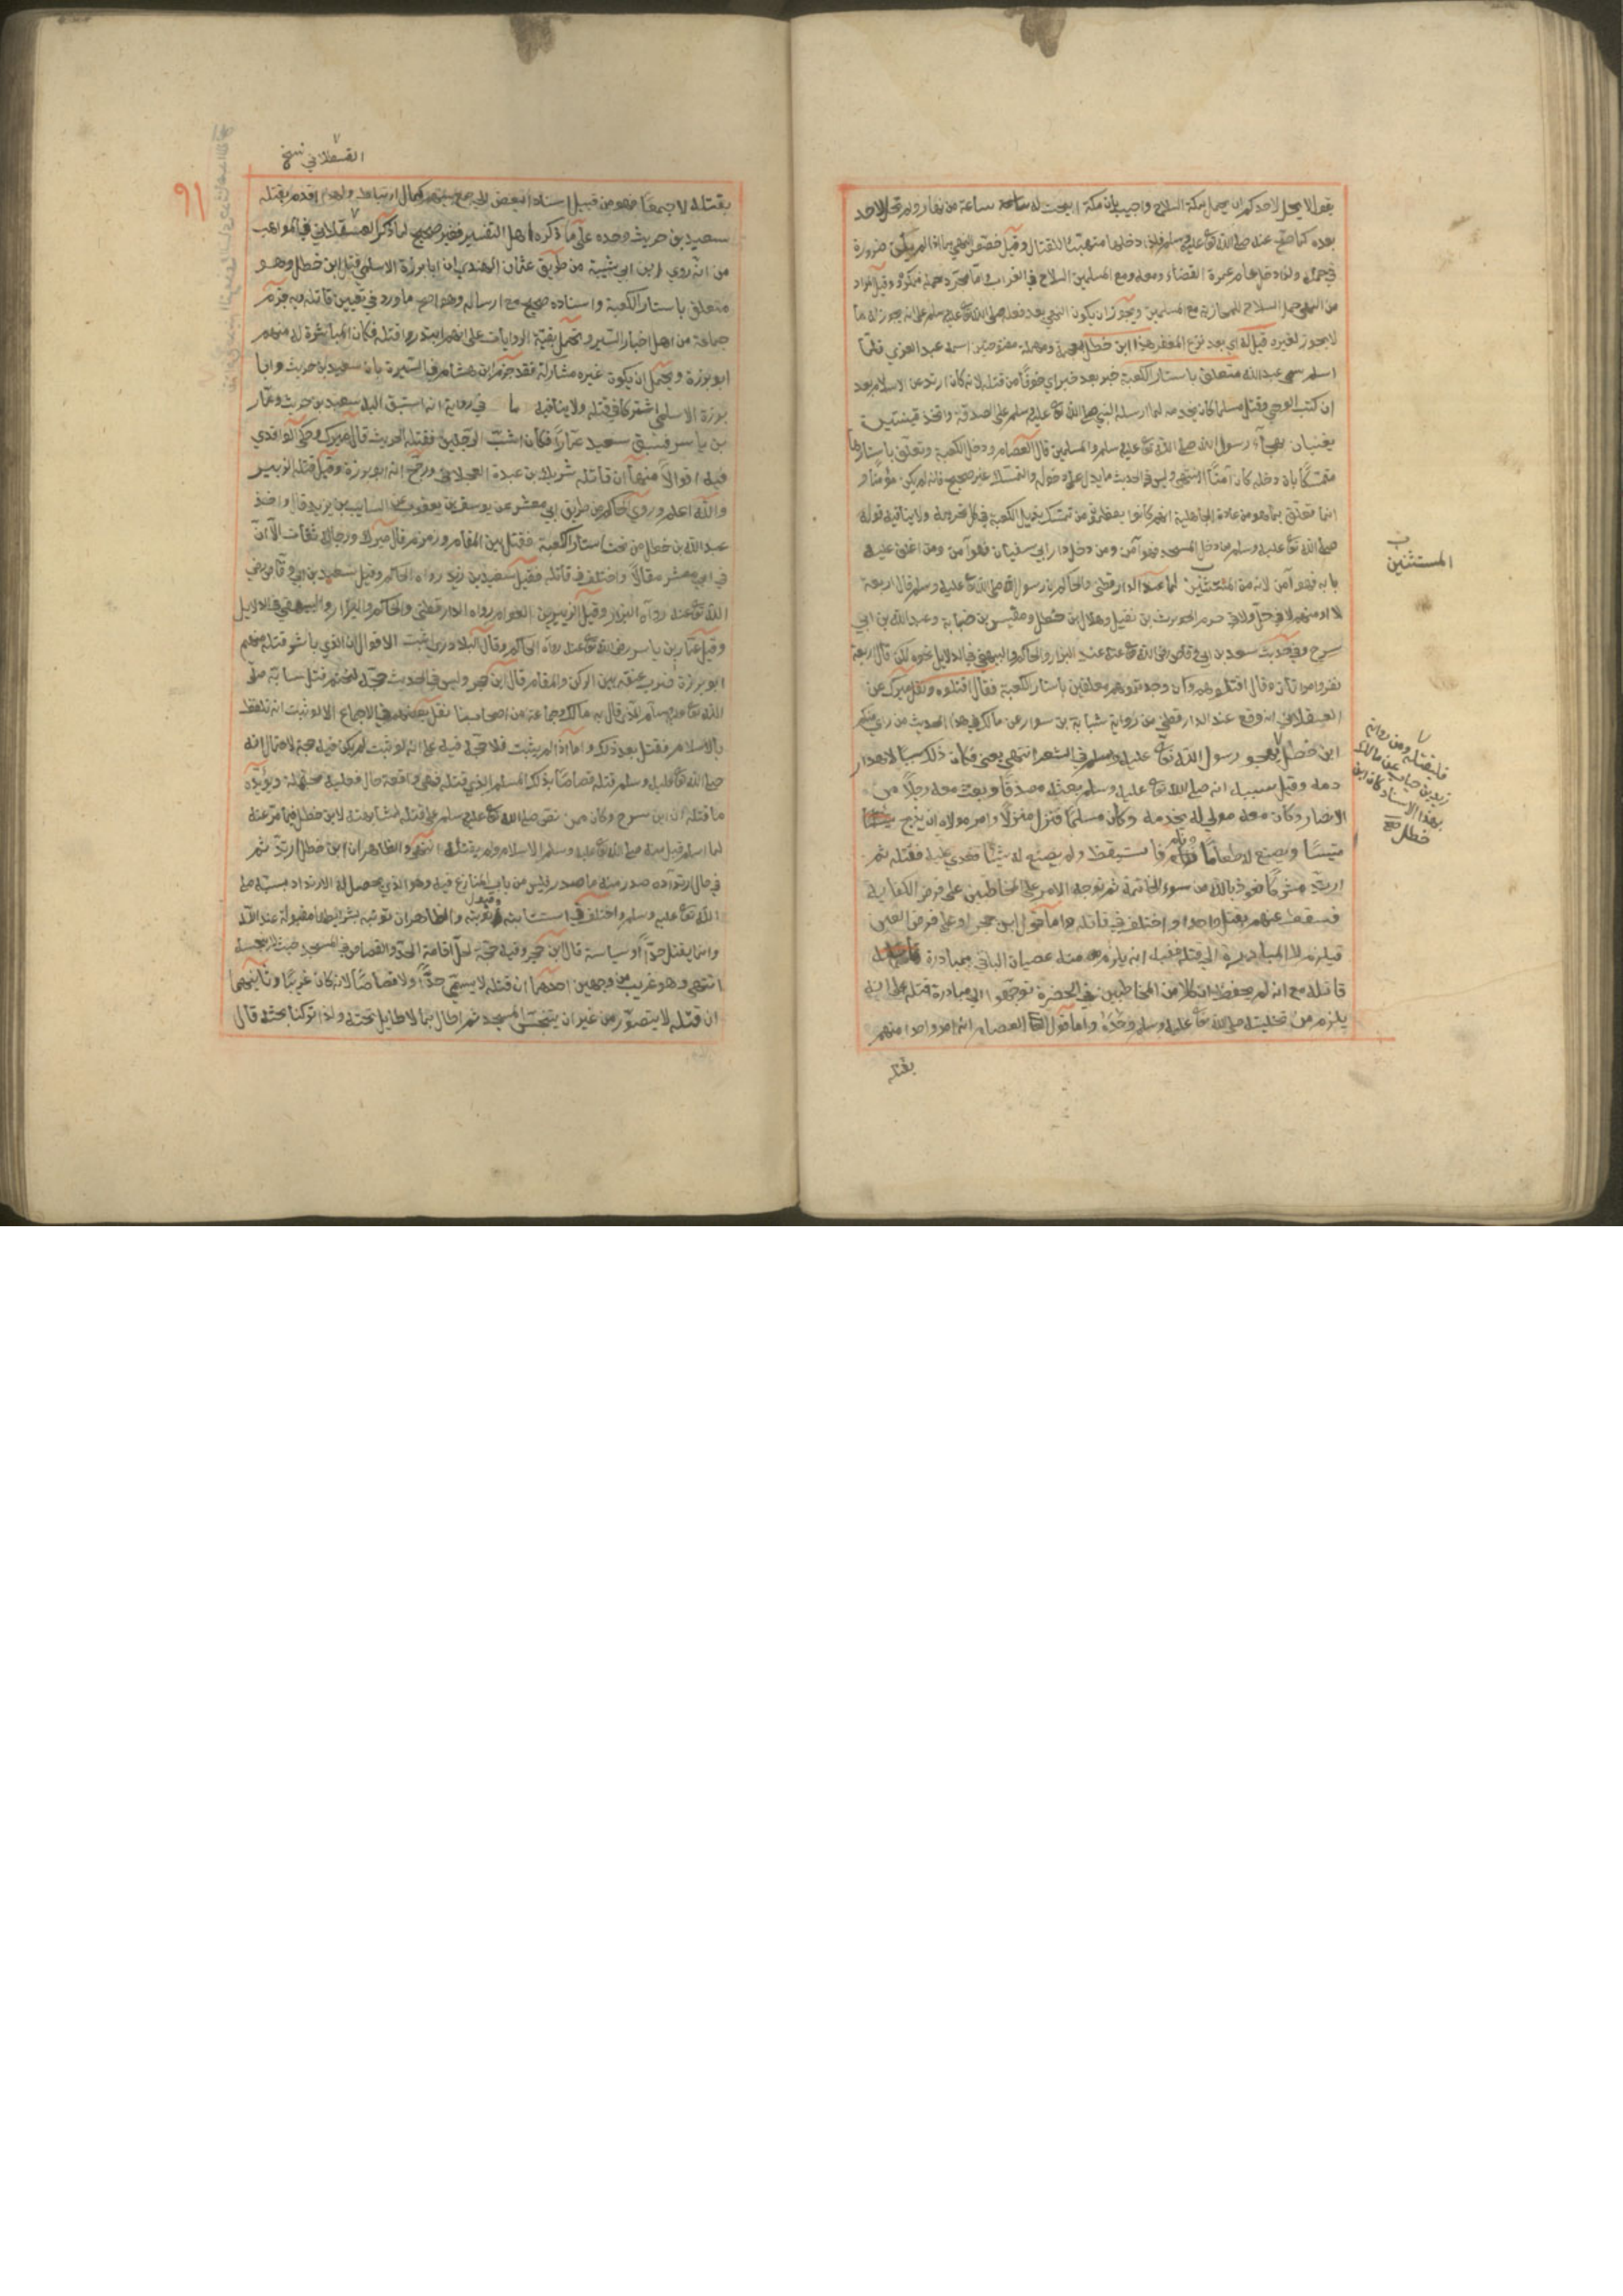 يقول لا يحل لاحدكم ان يحمل بمكة السلاح واجيب بان مكة ابيحت له ساعة من نهار ولم تحل لاحد
بعده كما صح عنه صلى الله تع عليه وسلم دخلها متهيئا للقتال وقيل خصص النهي بما اذا لم يكن ضرورة
في حمله ولذا دخل عام عمرة القضاء ومعه ومع المسلمين السلاح في القراب واما مجرد حمله فمكروه وقيل المراد
من النهي حمل السلاح للمحاربة مع المسلمين ويجوز ان يكون النهي بعد فعله صلى الله تع عليه وسلم على انه يجوز له ما
لا يجوز لغيره قيل له اي بعد نزع المغفر هذا ابن خطل اسمه عبد العزي فلما
اسلم سمي عبد الله متعلق باستار الكعبة خبر بعد خبر اي خوفا من قتله لانه كان ارتد عن الاسلام بعد
ان كتب الوحي وقتل مسلما كان يخدمه لما ارسله النبي صلى الله تع عليه وسلم على الصدقة واتخذ قينتين
يغنيان بهجاء رسول الله صلى الله تع عليه وسلم والمسلمين قال العصام ودخل الكعبة وتعلق باستارها
متمسكا بان دخله كان آمنا انتهى وليس في الحديث ما يدل على دخوله والتمسك غير صحيح فانه لم يكن مؤمنا و
انما تعلق بما هو من عادة الجاهلية انهم كانوا يعظمون من تمسك بذيل الكعبة في كل جريمة ولا ينافيه قوله
صلى الله تع عليه وسلم من دخل المسجد فهو آمن ومن دخل دار ابي سفيان فهو آمن ومن اغلق عليه
بابه فهو آمن لانه من المستثنين لما عند الدارقطني والحاكم ان رسول الله صلى الله تع عليه وسلم قال اربعة
لا اومنهم لا في حل ولا في حرم الحويرث بن نفيل وهلال بن خطل ومقيس بن ضبابة وعبد الله بن ابي
سرح وفي حديث سعد بن ابي وقاص رضى الله تع عنه عند البزار والحاكم والبيهقي في الدلايل نحوه لكن قال اربعة
نفر وامراتان وقال اقتلوهم وان وجدتموهم متعلقين باستار الكعبة فقال اقتلوه ونقل ميرك عن
العسقلاني انه وقع عند الدارقطني من رواية شبابة بن سوار عن مالك في هذا الحديث من راي منكم
ابن خطل يهجو رسول الله تع عليه وسلم في الشعر انتهى يعني فكان ذلك سببا لاهدار
دمه وقيل سببه انه صلى الله تع عليه وسلم بعثه مصدقا وبعث معه رجلا من
الانصار وكان معه مولى له يخدمه وكان مسلما فنزل منزلا وامر مولاه ان يذبح
تيسا ويصنع له طعاما ونام فاستيقظ ولم يصنع له شيئا فعدي عليه فقتله ثم
ارتد مشركا نعوذ بالله من سوء الخاتمة ثم توجه الامر على المخاطبين على فرض الكفاية
فسقط عنهم بقتل واحد واختلف في قاتله واما قول ابن حجر او على فرض العين
فيلزم المبادرة الى قتله ففيه انه يلزم منه عصيان الباقي بمبادرة
قاتله مع انه لم يحفظ ان كلا من المخاطبين في الحضرة توجهوا الى مبادرة قتله على انه
يلزم من تخليته صلى الله تع عليه وسلم وحده واما قول العصام انه امر واحدا منهم
بقتله
المستثنين
فليقتله ومن رواية
زيد بن حباب عن مالك
بهذا الاسناد كان ابن
خطل صح
القسطلاني نسخ
٩١
بقتله لا جميعا فهو من قبيل اسناد البعض الى جمع بينهم كمال ارتباط ولهذا اقدم بقتله
سعيد بن حريث وحده على ما ذكره اهل التفسير فغير صحيح لما ذكر العسقلاني في المواهب
من انه روى ابن ابي شيبة من طريق عثمان الهندي ان ابا برزة الاسلمي قتل ابن خطل وهو
متعلق باستار الكعبة واسناده صحيح مع ارساله وهو اصح ما ورد في تعيين قاتله وبه جزم
جماعة من اهل اخبار السير وتحمل بقية الروايات على انهم ابتدروا قتله فكان المباشرة له منهم
ابو برزة ويحتمل ان يكون غيره مشاركه فقد جزم ابن هشام في السيرة بان سعيد بن حريث وابا
برزة الاسلمي اشتركا في قتله ولا ينافيه ما في رواية انه استبق اليه سعيد بن حريث وعمار
بن ياسر فسبق سعيد عمارا وكان اشب الرجلين فقتله الحديث قال ميرك وحكى الواقدي
فيه اقوالا منها ان قاتله شريك بن عبدة العجلاني ورجح انه ابو برزة وقيل قتله الزبير
والله اعلم وروى الحاكم من طريق ابي معشر عن يوسف بن يعقوب عن السايب بن يزيد قال واخذ
عبد الله بن خطل من تحت استار الكعبة فقتل بين المقام وزمزم قال ميرك ورجاله ثقات الا ان
في ابي معشر مقالا واختلف في قاتله فقيل سعيد بن زيد رواه الحاكم وقيل سعد بن ابي وقاص رضي
الله تع عنه رواه البزار وقيل الزبير بن العوام رواه الدارقطني والحاكم والبزار والبيهقي في الدلايل
وقيل عمار بن ياسر رضى الله تع عنه رواه الحاكم وقال البلادري اثبت الاقوال ان الذي باشر قتله منهم
ابو برزة ضرب عنقه بين الركن والمقام قال ابن حجر وليس في الحديث حجة لتحتم قتل سابه صلى
الله تع عليه وسلم الذي قال به مالك وجماعة من اصحابنا نقل بعضهم فيه الاجماع الا لو ثبت انه تلفظ
بالاسلام فقتل بعد ذلك واما اذا لم يثبت فلا حجة فيه على انه لو ثبت لم يكن فيه حجة لاحتمال انه
صلى الله تع عليه وسلم قتله قصاصا بذلك المسلم الذي قتله فهي واقعة حال فعلية محتملة ويؤيده
ما قتله ان ابن سرح وكان ممن نص صلى الله تع عليه وسلم على قتله لمشابهته لابن خطل فيما مر عنه
لما اسلم قبل منه صلى الله تع عليه وسلم الاسلام ولم يقتله انتهى والظاهر ان ابن خطل ارتد ثم
في حال ارتداده صدر منه ما صدر فليس من باب المتنازع فيه وهو الذي يحصل له الارتداد بسبه صلى
الله تع عليه وسلم واختلف في استتابته وقبول توبته والظاهر ان توبته بشرايطها مقبولة عند الله
وانما يقتل حدا او سياسة قال ابن حجر وفيه حجة لحل اقامة الحد والقصاص في المسجد حيث لا ينجسه
انتهى وهو غريب من وجهين احدهما ان قتله لا يسمى حدا ولا قصاصا لانه كان حربيا وثانيهما
ان قتله لا يتصور من غير ان يتنجس المسجد ثم اطال بما لا طايل تحته ولذا تركنا بحثه قال